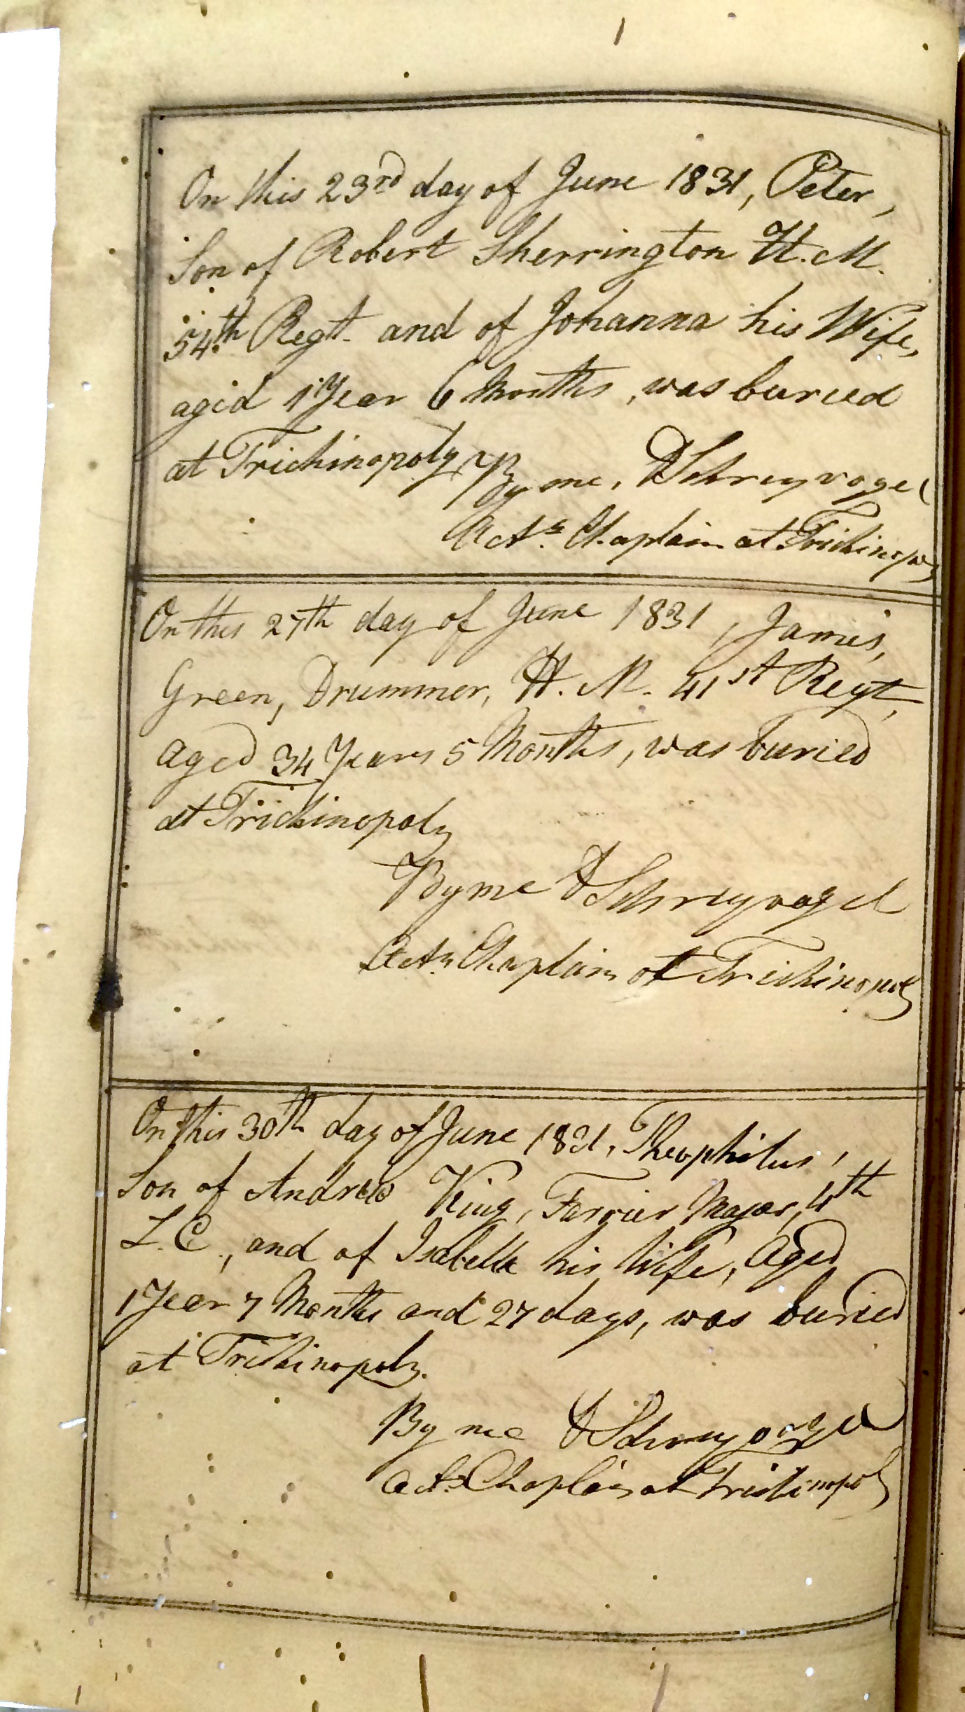 On this 23rd day of June 1831, Peter,
Son of Robert Sherrington H. M.
54th Regt. and of Johanna his Wife,
aged 1 Year 6 Months, was buried
at Trichinopoly, By me, D Schreyvogel
Actg. Chaplain at Trichinopoly
On this 27th day of June 1831, James,
Green, Drummer, H. M. 41st Regt,
aged 34 Years 5 Months, was buried
at Trichinopoly
By me D Schreyvogel
Actg. Chaplain at Trichinopoly
On this 30th day of June 1831, Theophilus,
Son of Andrew King, Farrier Major, 4th
L. C., and of Isabella his Wife, aged
1 Year 7 Months and 27 days, was buried
at Trichinopoly.
By me D Schreyvogel
Actg. Chaplain at Trichinopoly